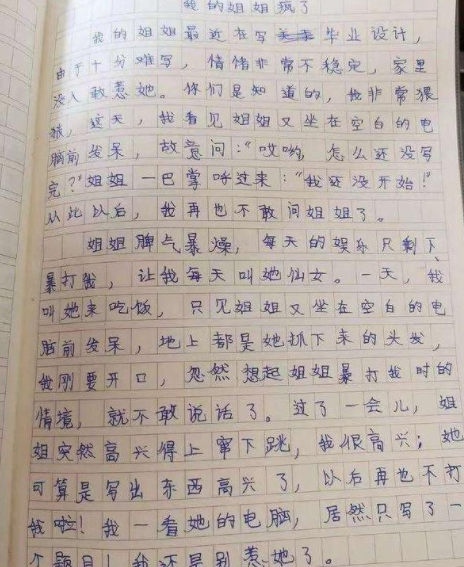 我的姐姐疯了
我的姐姐最近在写毕业设计，
由于十分难写，情绪非常不稳定，家里
没人敢惹她。你们是知道的，我非常狠
狼，这天，我看见姐姐又坐在空白的电
脑前发呆，故意问：“哎哟，怎么还没写
完？”姐姐一巴掌呼过来：“我还没开始！”
从此以后，我再也不敢问姐姐了。
姐姐脾气暴燥，每天的娱乐只剩下
暴打我，让我每天叫她仙女。一天，我
叫她来吃饭，只见姐姐又坐在空白的电
脑前发呆，地上都是她抓下来的头发，
我刚要开口，忽然想起姐姐暴打我时的
情境，就不敢说话了。过了一会儿，姐
姐突然高兴得上窜下跳，我很高兴；她
可算是写出东西高兴了，以后再也不打
我啦！我一看她的电脑，居然只写了一
个题目！我还是别惹她了。